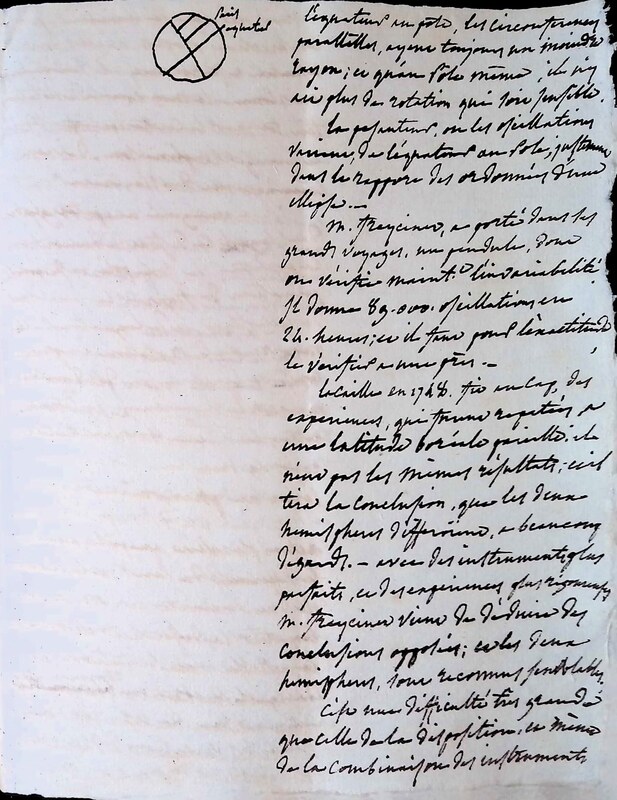 l'équateur au pole, les circonferences
paralleles, ayant toujours un moindre
rayon; et qu'au Pole même, il n'y
ait plus de rotation qui soit sensible.
La pesanteur, ou les oscillations
varient, de l'équateur au Pole, justement
dans le rapport des ordonnées d'une
ellipse. —
M. Freycinet, a porté dans ses
grands voyages, un pendule, dont
on vérifie maint.t l'invariabilité.
Il donne 89.000. oscillations en
24. heures; et il faut pour l'exactitude
le vérifier a une près. —
La Caille en 1748. fit au Cap, des
experiences, qui furent repetées, a
une latitude boréale pareille; il
n'eut pas les mêmes résultats; et il
tira la conclusion, que les deux
hemispheres différoient, a beaucoup
d'égards. — avec des instruments plus
parfaits, et des experiences plus rigoureuses
M. Freycinet vient de déduire des
conclusions opposées; et les deux
hemispheres, sont reconnus semblables.
C'est une difficulté très grande
que celle de la disposition, et même
de la combinaison des instruments